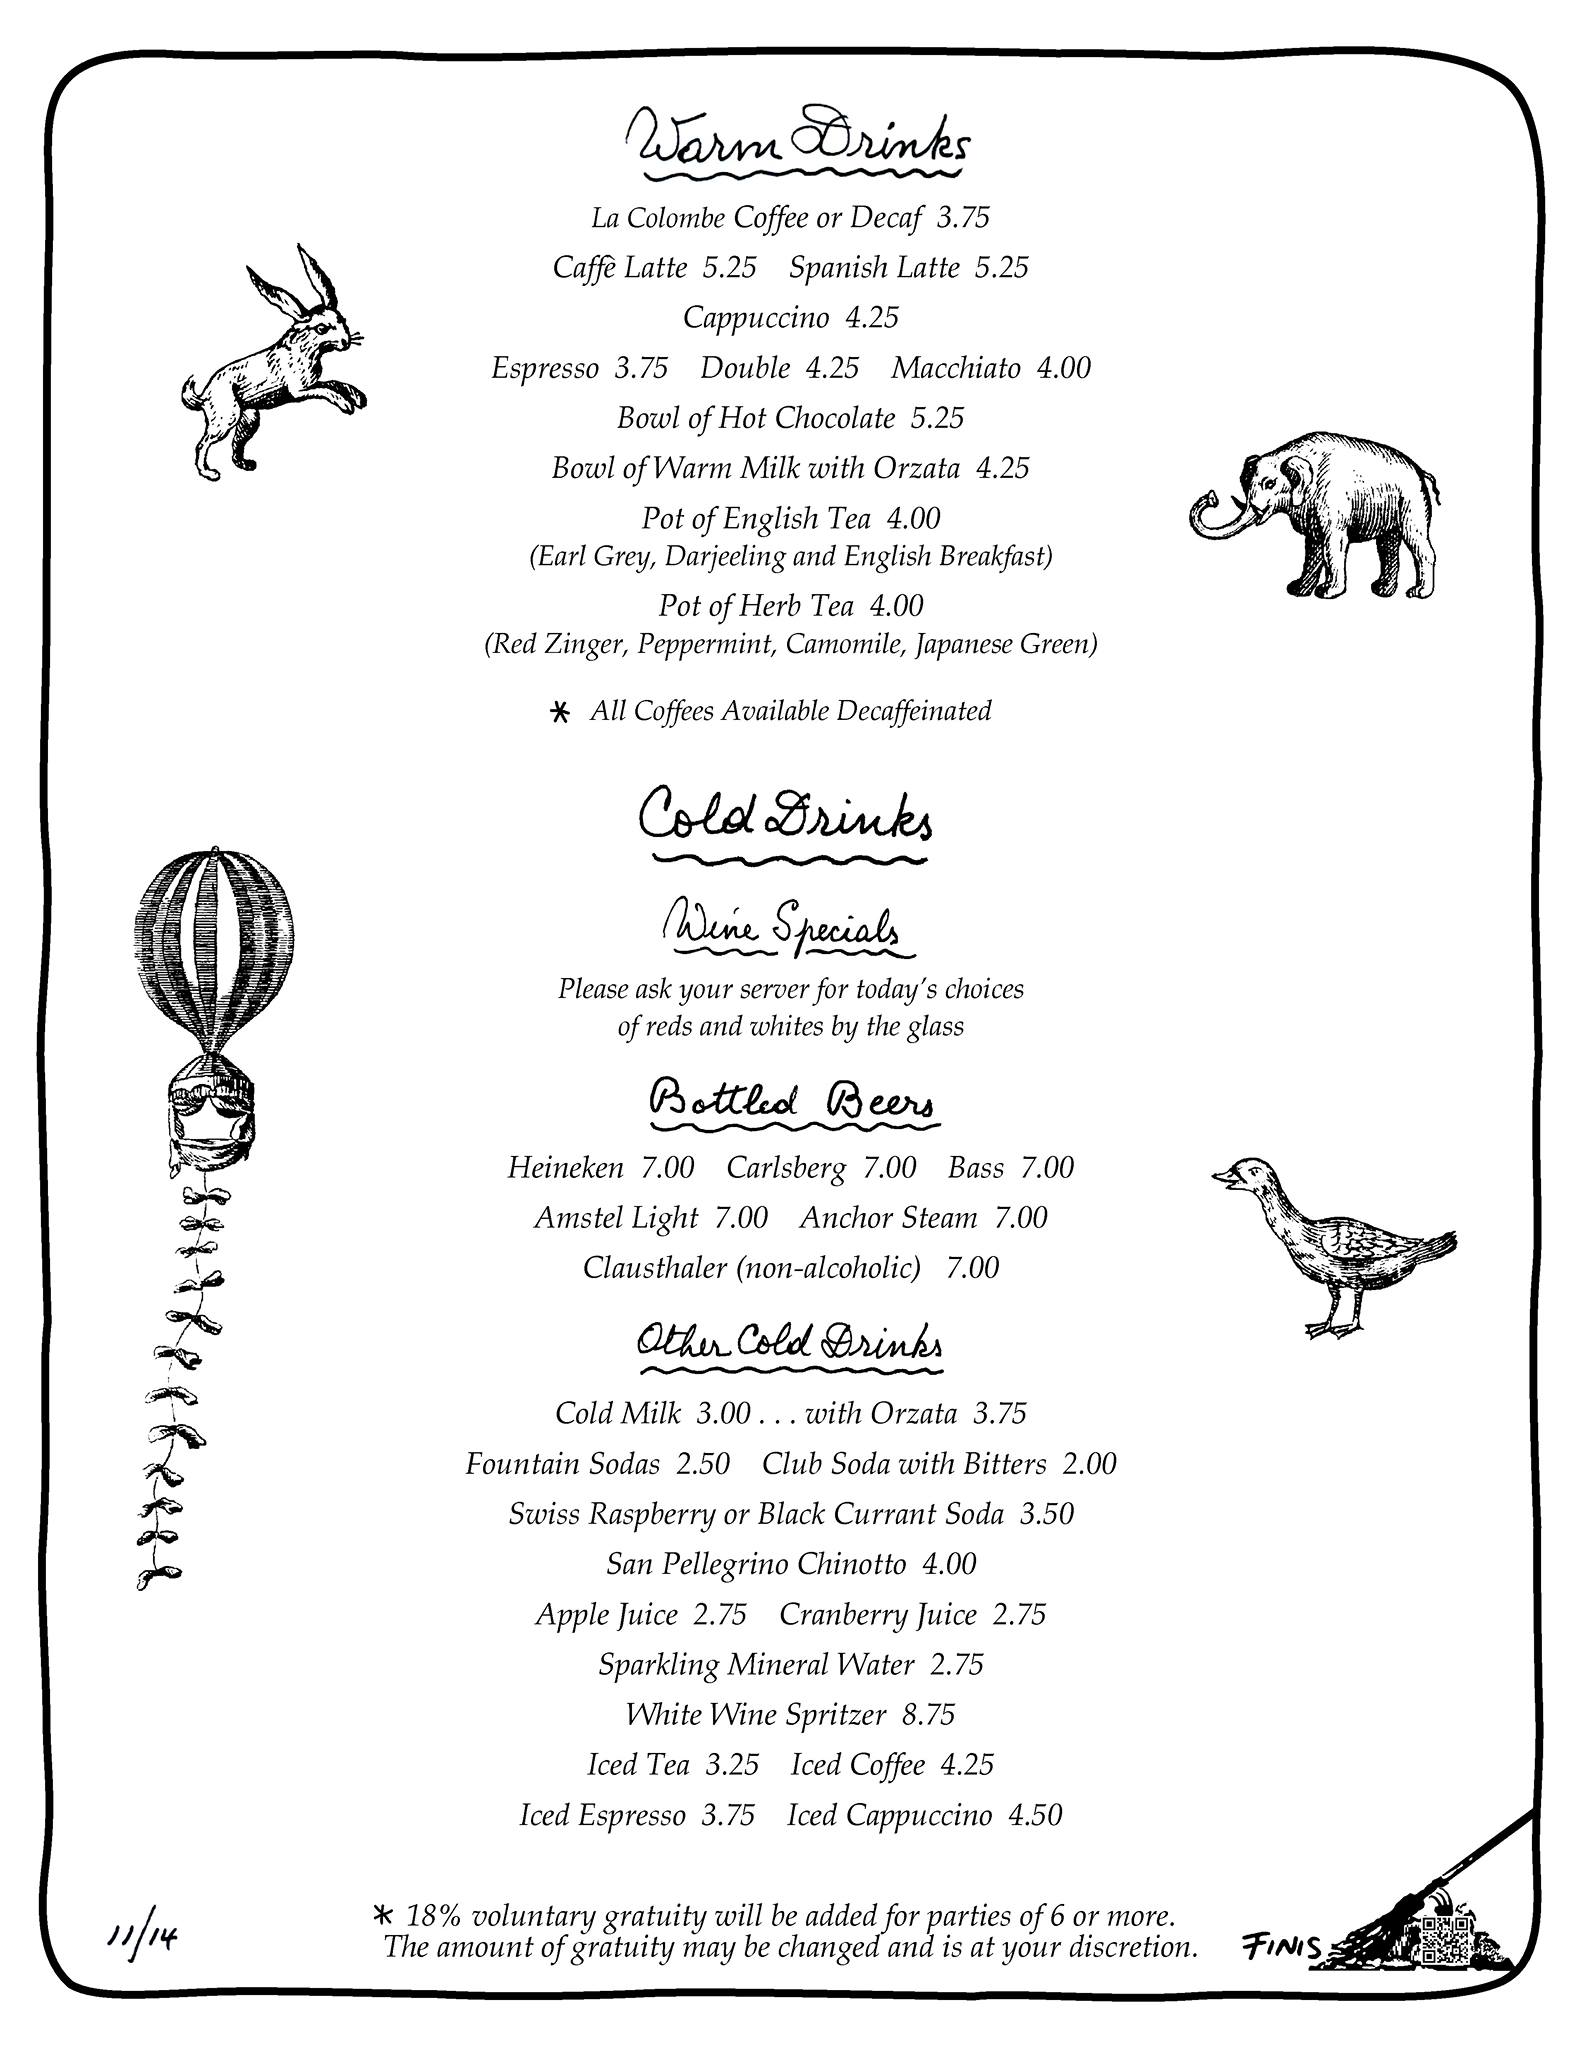 Warm Drinks
La Colombe Coffee or Decaf 3.75
Caffè Latte 5.25 Spanish Latte 5.25
Cappuccino 4.25
Espresso 3.75 Double 4.25 Macchiato 4.00
Bowl of Hot Chocolate 5.25
Bowl of Warm Milk with Orzata 4.25
Pot of English Tea 4.00
(Earl Grey, Darjeeling and English Breakfast)
Pot of Herb Tea 4.00
(Red Zinger, Peppermint, Camomile, Japanese Green)
* All Coffees Available Decaffeinated
Cold Drinks
Wine Specials
Please ask your server for today's choices
of reds and whites by the glass
Bottled Beers
Heineken 7.00 Carlsberg 7.00 Bass 7.00
Amstel Light 7.00 Anchor Steam 7.00
Clausthaler (non-alcoholic) 7.00
Other Cold Drinks
Cold Milk 3.00 . . . with Orzata 3.75
Fountain Sodas 2.50 Club Soda with Bitters 2.00
Swiss Raspberry or Black Currant Soda 3.50
San Pellegrino Chinotto 4.00
Apple Juice 2.75 Cranberry Juice 2.75
Sparkling Mineral Water 2.75
White Wine Spritzer 8.75
Iced Tea 3.25 Iced Coffee 4.25
Iced Espresso 3.75 Iced Cappuccino 4.50
* 18% voluntary gratuity will be added for parties of 6 or more.
The amount of gratuity may be changed and is at your discretion.
11/14
FINIS